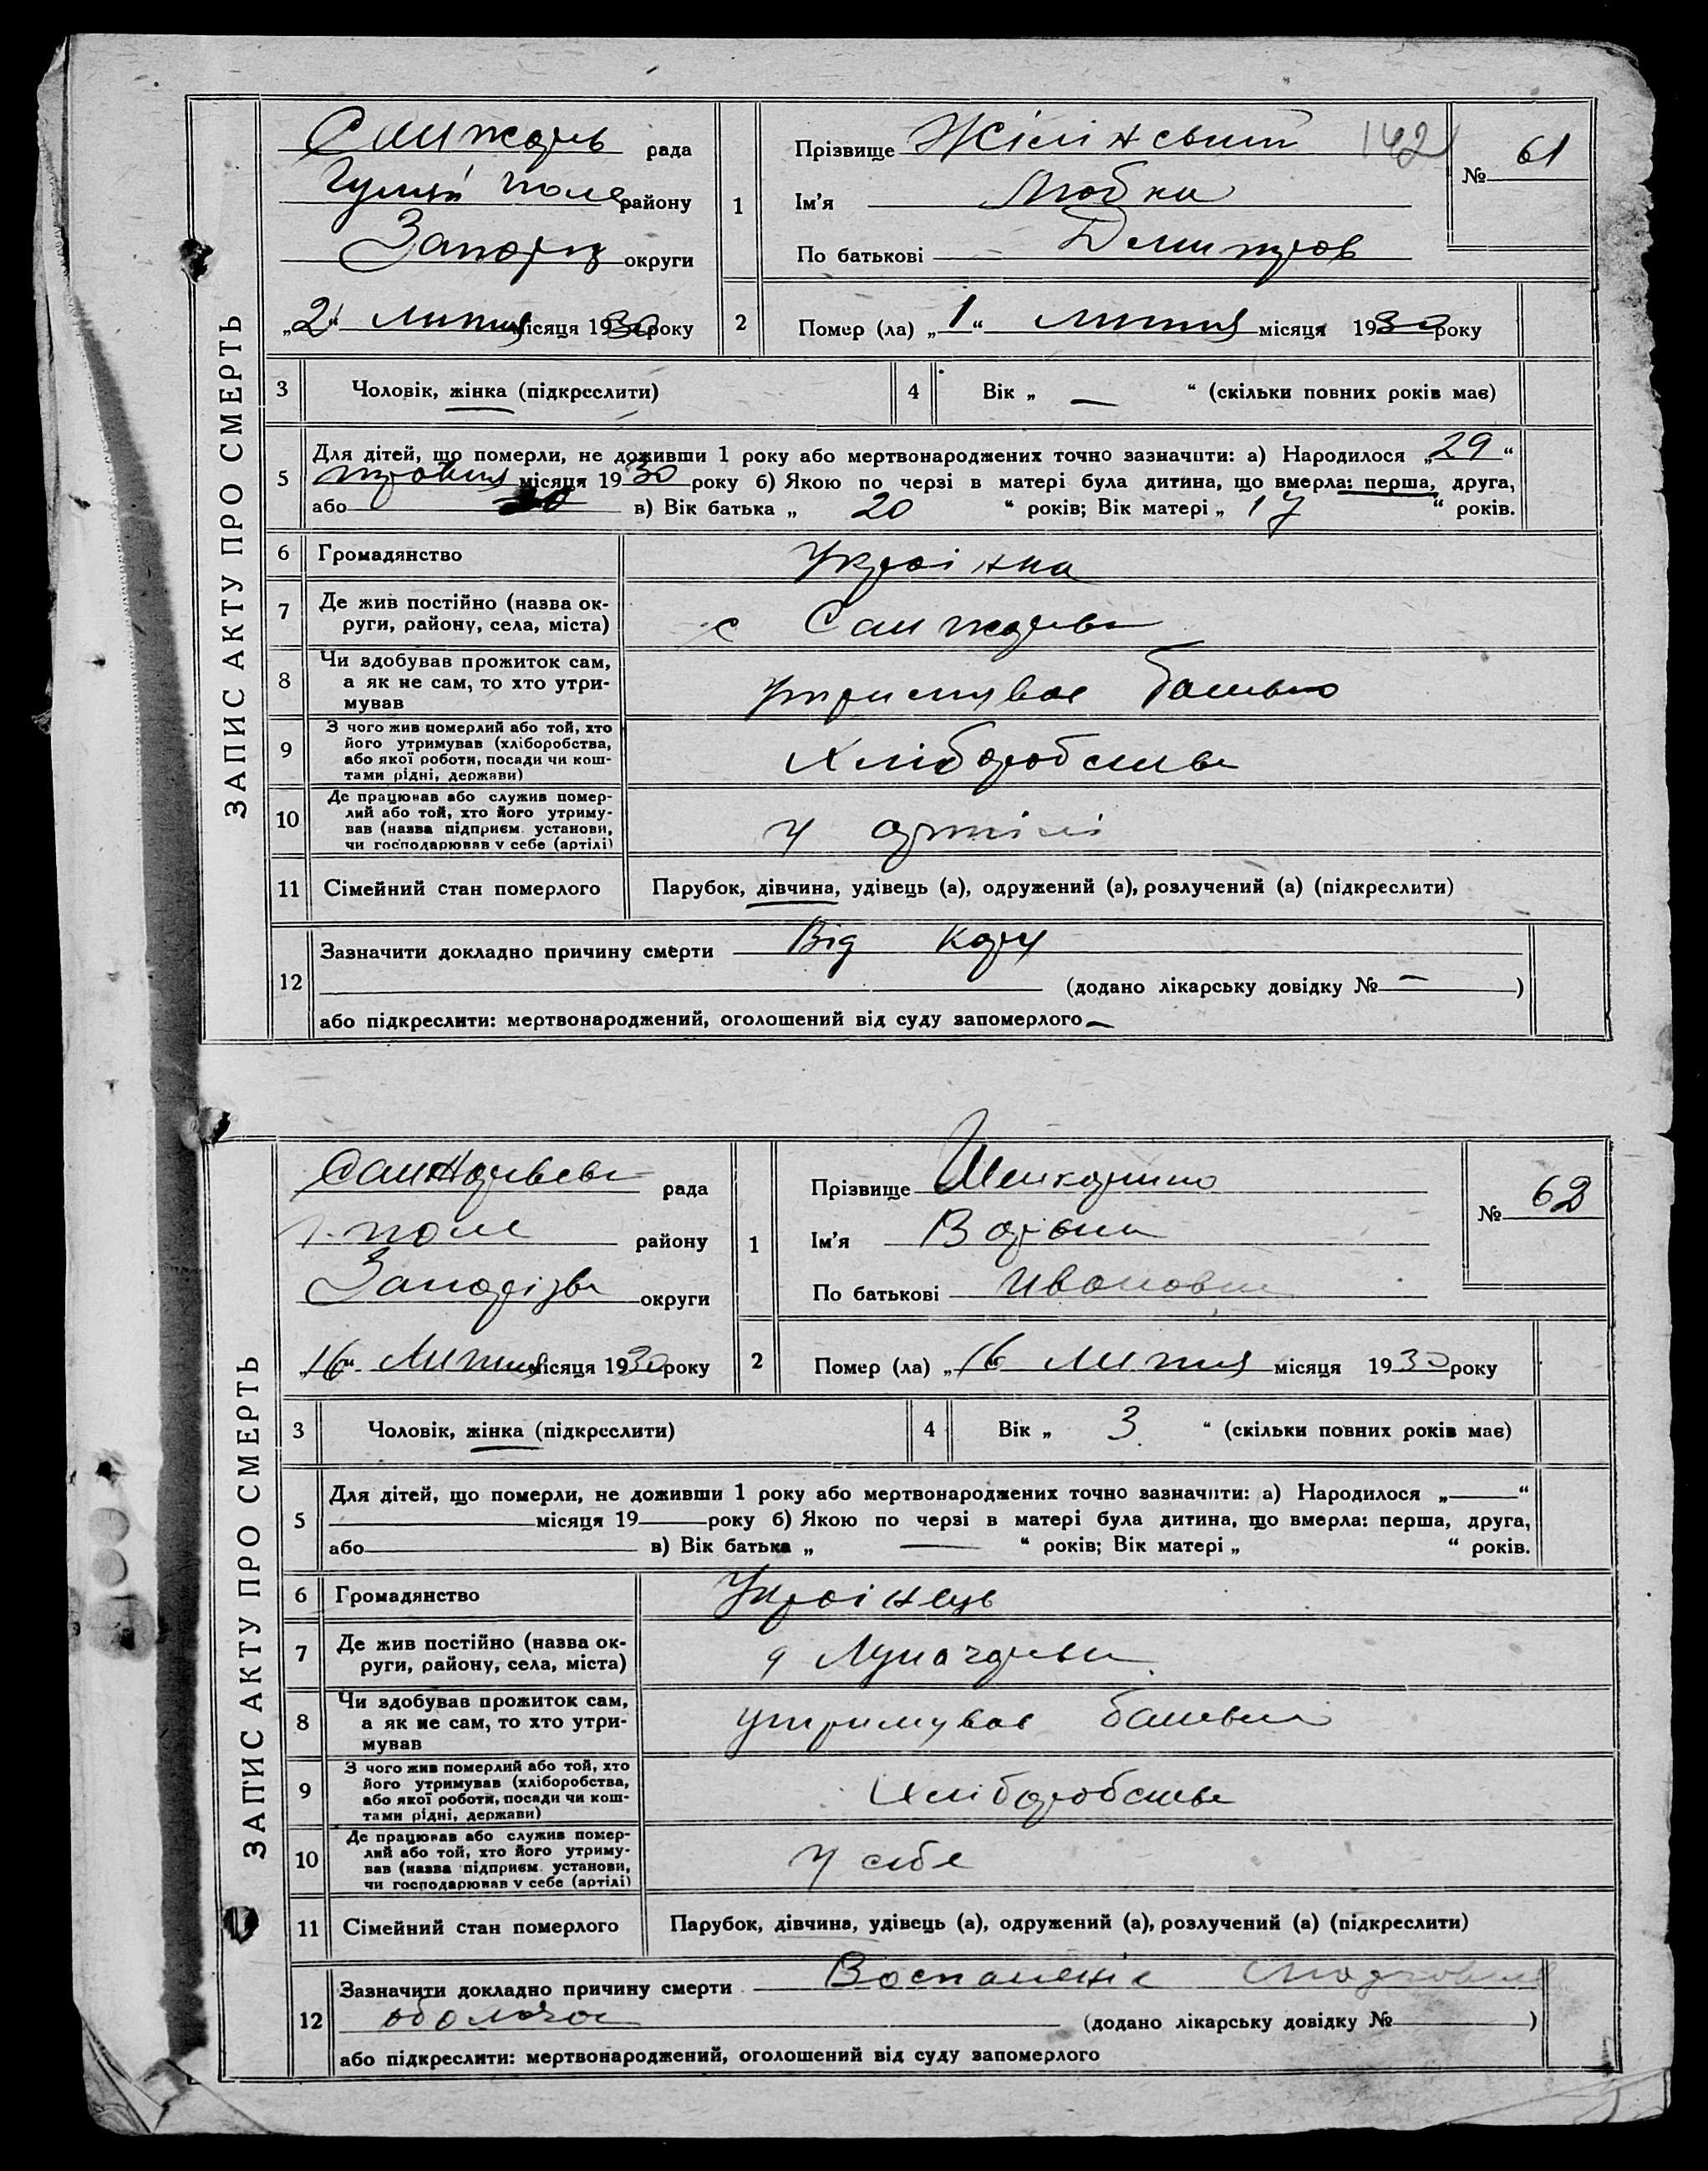 ЗАПИС АКТУ ПРО СМЕРТЬ
рада
Гуляй поле району
Запоріз округи
„2“ липня місяця 1930 року
1
Прізвище Жілінський 142
Ім'я Любка
По батькові Дмитров
№ 61
2
Помер (ла) „1“ липня місяця 1930 року
3 Чоловік, жінка (підкреслити)
4 Вік „ — “ (скільки повних років має)
5 Для дітей, що померли, не доживши 1 року або мертвонароджених точно зазначити: а) Народилося „29“
травня місяця 1930 року б) Якою по черзі в матері була дитина, що вмерла: перша, друга,
або в) Вік батька „ 20 “ років; Вік матері „ 17 “ років.
6 Громадянство Украінка
7 Де жив постійно (назва ок-
руги, району, села, міста) с
8 Чи здобував прожиток сам,
а як не сам, то хто утри-
мував утримував батько
9 З чого жив померлий або той, хто
його утримував (хліборобства,
або якої роботи, посади чи кош-
тами рідні, держави) Хліборобства
10 Де працював або служив помер-
лий або той, хто його утриму-
вав (назва підприєм. установи,
чи господарював у себе (артілі) у артілі
11 Сімейний стан померлого Парубок, дівчина, удівець (а), одружений (а), розлучений (а) (підкреслити)
12 Зазначити докладно причину смерти Від кору
(додано лікарську довідку № — )
або підкреслити: мертвонароджений, оголошений від суду запомерлого —
ЗАПИС АКТУ ПРО СМЕРТЬ
рада
Г. поле району
Запорізьк округи
„16“ Липня місяця 1930 року
1
Прізвище
Ім'я
По батькові Ивановна
№ 62
2
Помер (ла) „16“ липня місяця 1930 року
3 Чоловік, жінка (підкреслити)
4 Вік „ 3 “ (скільки повних років має)
5 Для дітей, що померли, не доживши 1 року або мертвонароджених точно зазначити: а) Народилося „ — “
місяця 19 року б) Якою по черзі в матері була дитина, що вмерла: перша, друга,
або в) Вік батька „ — “ років; Вік матері „ “ років.
6 Громадянство Украінець
7 Де жив постійно (назва ок-
руги, району, села, міста)
8 Чи здобував прожиток сам,
а як не сам, то хто утри-
мував утримував батько
9 З чого жив померлий або той, хто
його утримував (хліборобства,
або якої роботи, посади чи кош-
тами рідні, держави) Хліборобства
10 Де працював або служив помер-
лий або той, хто його утриму-
вав (назва підприєм. установи,
чи господарював у себе (артілі) У себе
11 Сімейний стан померлого Парубок, дівчина, удівець (а), одружений (а), розлучений (а) (підкреслити)
12 Зазначити докладно причину смерти
(додано лікарську довідку № )
або підкреслити: мертвонароджений, оголошений від суду запомерлого